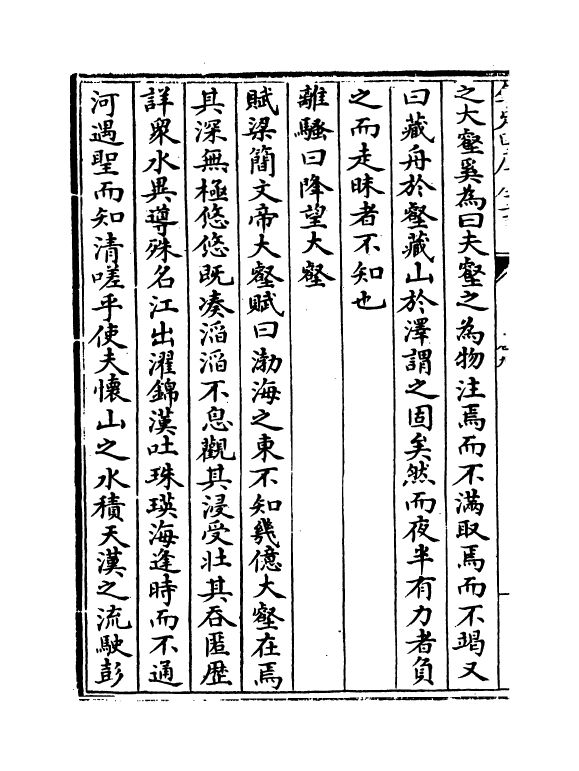 之大壑奚為曰夫壑之為物注焉而不滿取焉而不竭又
曰藏舟於壑藏山於澤謂之固矣然而夜半有力者負
之而走昧者不知也
離騷曰降望大壑
賦梁簡文帝大壑賦曰渤海之東不知幾億大壑在焉
其深無極悠悠既湊滔滔不息觀其浸受壯其吞匿歴
詳衆水異導殊名江出濯錦漢吐珠瑛海逢時而不通
河遇聖而知清嗟乎使夫懷山之水積天漢之流駛彭